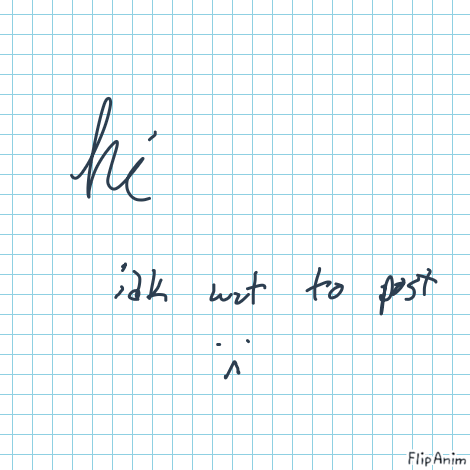 hi
idk wut to post
FlipAnim